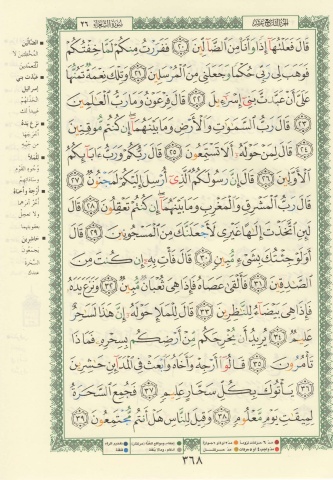 الجزء التاسع عشر
سورة الشعراء
٢٦
قَالَ فَعَلْتُهَا إِذًا وَأَنَا مِنَ الضَّالِّينَ ٢٠ فَفَرَرْتُ مِنكُمْ لَمَّا خِفْتُكُمْ
فَوَهَبَ لِي رَبِّي حُكْمًا وَجَعَلَنِي مِنَ الْمُرْسَلِينَ ٢١ وَتِلْكَ نِعْمَةٌ تَمُنُّهَا
عَلَيَّ أَنْ عَبَّدتَّ بَنِي إِسْرَاءِيلَ ٢٢ قَالَ فِرْعَوْنُ وَمَا رَبُّ الْعَالَمِينَ
٢٣ قَالَ رَبُّ السَّمَاوَاتِ وَالْأَرْضِ وَمَا بَيْنَهُمَا إِن كُنتُم مُّوقِنِينَ
٢٤ قَالَ لِمَنْ حَوْلَهُ أَلَا تَسْتَمِعُونَ ٢٥ قَالَ رَبُّكُمْ وَرَبُّ ءَابَآئِكُمُ
الْأَوَّلِينَ ٢٦ قَالَ إِنَّ رَسُولَكُمُ الَّذِي أُرْسِلَ إِلَيْكُمْ لَمَجْنُونٌ ٢٧
قَالَ رَبُّ الْمَشْرِقِ وَالْمَغْرِبِ وَمَا بَيْنَهُمَا إِن كُنتُمْ تَعْقِلُونَ ٢٨ قَالَ
لَئِنِ اتَّخَذْتَ إِلَهًا غَيْرِي لَأَجْعَلَنَّكَ مِنَ الْمَسْجُونِينَ ٢٩ قَالَ
أَوَلَوْ جِئْتُكَ بِشَيْءٍ مُّبِينٍ ٣٠ قَالَ فَأْتِ بِهِ إِن كُنتَ مِنَ
الصَّادِقِينَ ٣١ فَأَلْقَى عَصَاهُ فَإِذَا هِيَ ثُعْبَانٌ مُّبِينٌ ٣٢ وَنَزَعَ يَدَهُ
فَإِذَا هِيَ بَيْضَآءُ لِلنَّاظِرِينَ ٣٣ قَالَ لِلْمَلَإِ حَوْلَهُ إِنَّ هَذَا لَسَاحِرٌ
عَلِيمٌ ٣٤ يُرِيدُ أَن يُخْرِجَكُم مِّنْ أَرْضِكُم بِسِحْرِهِ فَمَاذَا
تَأْمُرُونَ ٣٥ قَالُوا أَرْجِهْ وَأَخَاهُ وَابْعَثْ فِي الْمَدَآئِنِ حَاشِرِينَ
٣٦ يَأْتُوكَ بِكُلِّ سَحَّارٍ عَلِيمٍ ٣٧ فَجُمِعَ السَّحَرَةُ
لِمِيقَاتِ يَوْمٍ مَّعْلُومٍ ٣٨ وَقِيلَ لِلنَّاسِ هَلْ أَنتُم مُّجْتَمِعُونَ ٣٩
الضالين
عبّدت بني
إسرائيل
نزع يده
للملأ
أرجه وأخاه
حاشرين
السّحرة
٣٦٨